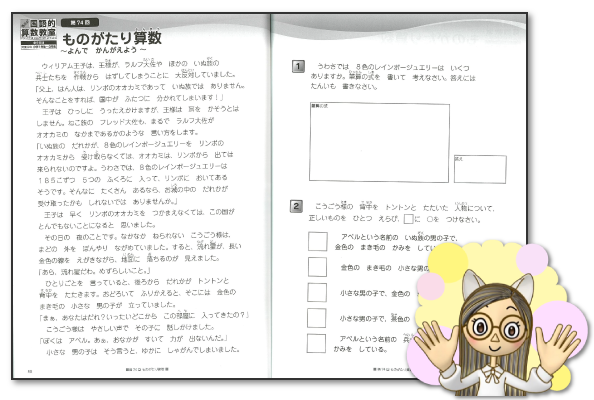 国語的
算数教室
第74回
ものがたり算数
～よんで かんがえよう～
ウィリアム王子は、王様が、ラルフ大佐や ほかの いぬ族の
兵士たちを 作戦から はずしてしまうことに 大反対していました。
「父上、はん人は、リンボのオオカミであって いぬ族では ありません。
そんなことをすれば、国中が ふたつに 分かれてしまいます！」
王子は ひっしに うったえかけますが、王様は 耳を かそうとは
しません。ねこ族の フレッド大佐も、まるで ラルフ大佐が
オオカミの なかまであるかのような 言い方をします。
「いぬ族の だれかが、8色のレインボージュエリーを リンボの
オオカミから 受け取らなくては、オオカミは、リンボから 出ては
来られないのですよ。うわさでは、8色のレインボージュエリーは
185こずつ 5つの ふくろに 入って、リンボに おいてある
そうです。そんなに たくさん あるなら、お城の中の だれかが
受け取ったかも しれないでは ありませんか。」
王子は 早く リンボのオオカミを つかまえなくては、この国が
とんでもないことになると 思いました。
その日の 夜のことです。なかなか ねむれない こうごう様は、
まどの 外を ぼんやり ながめていました。すると、流れ星が、長い
金色の線を えがきながら、地面に 落ちるのが 見えました。
「あら、流れ星だわ。めずらしいこと。」
ひとりごとを 言っていると、後ろから だれかが トントンと
背中を たたきます。おどろいて ふりかえると、そこには 金色の
まき毛の 小さな 男の子が 立っていました。
「まぁ、あなたはだれ？いったいどこから この部屋に 入ってきたの？」
こうごう様は やさしい声で その子に 話しかけました。
「ぼくは アベル。あぁ、おなかが すいて 力が 出ないんだ。」
小さな 男の子は そう言うと、ゆかに しゃがんでしまいました。
1
うわさでは 8色のレインボージュエリーは いくつ
ありますか。筆算の式を 書いて 考えなさい。答えには
たんいも 書きなさい。
筆算の式
答え
2
こうごう様の 背中を トントンと たたいた 人物について、
正しいものを ひとつ えらび、□に ○を つけなさい。
アベルという名前の いぬ族の男の子で、
金色の まき毛の かみを
金色の まき毛の 小さな
小さな男の子で、金色の
小さな男の子で、
アベルという名前の
かみを している。